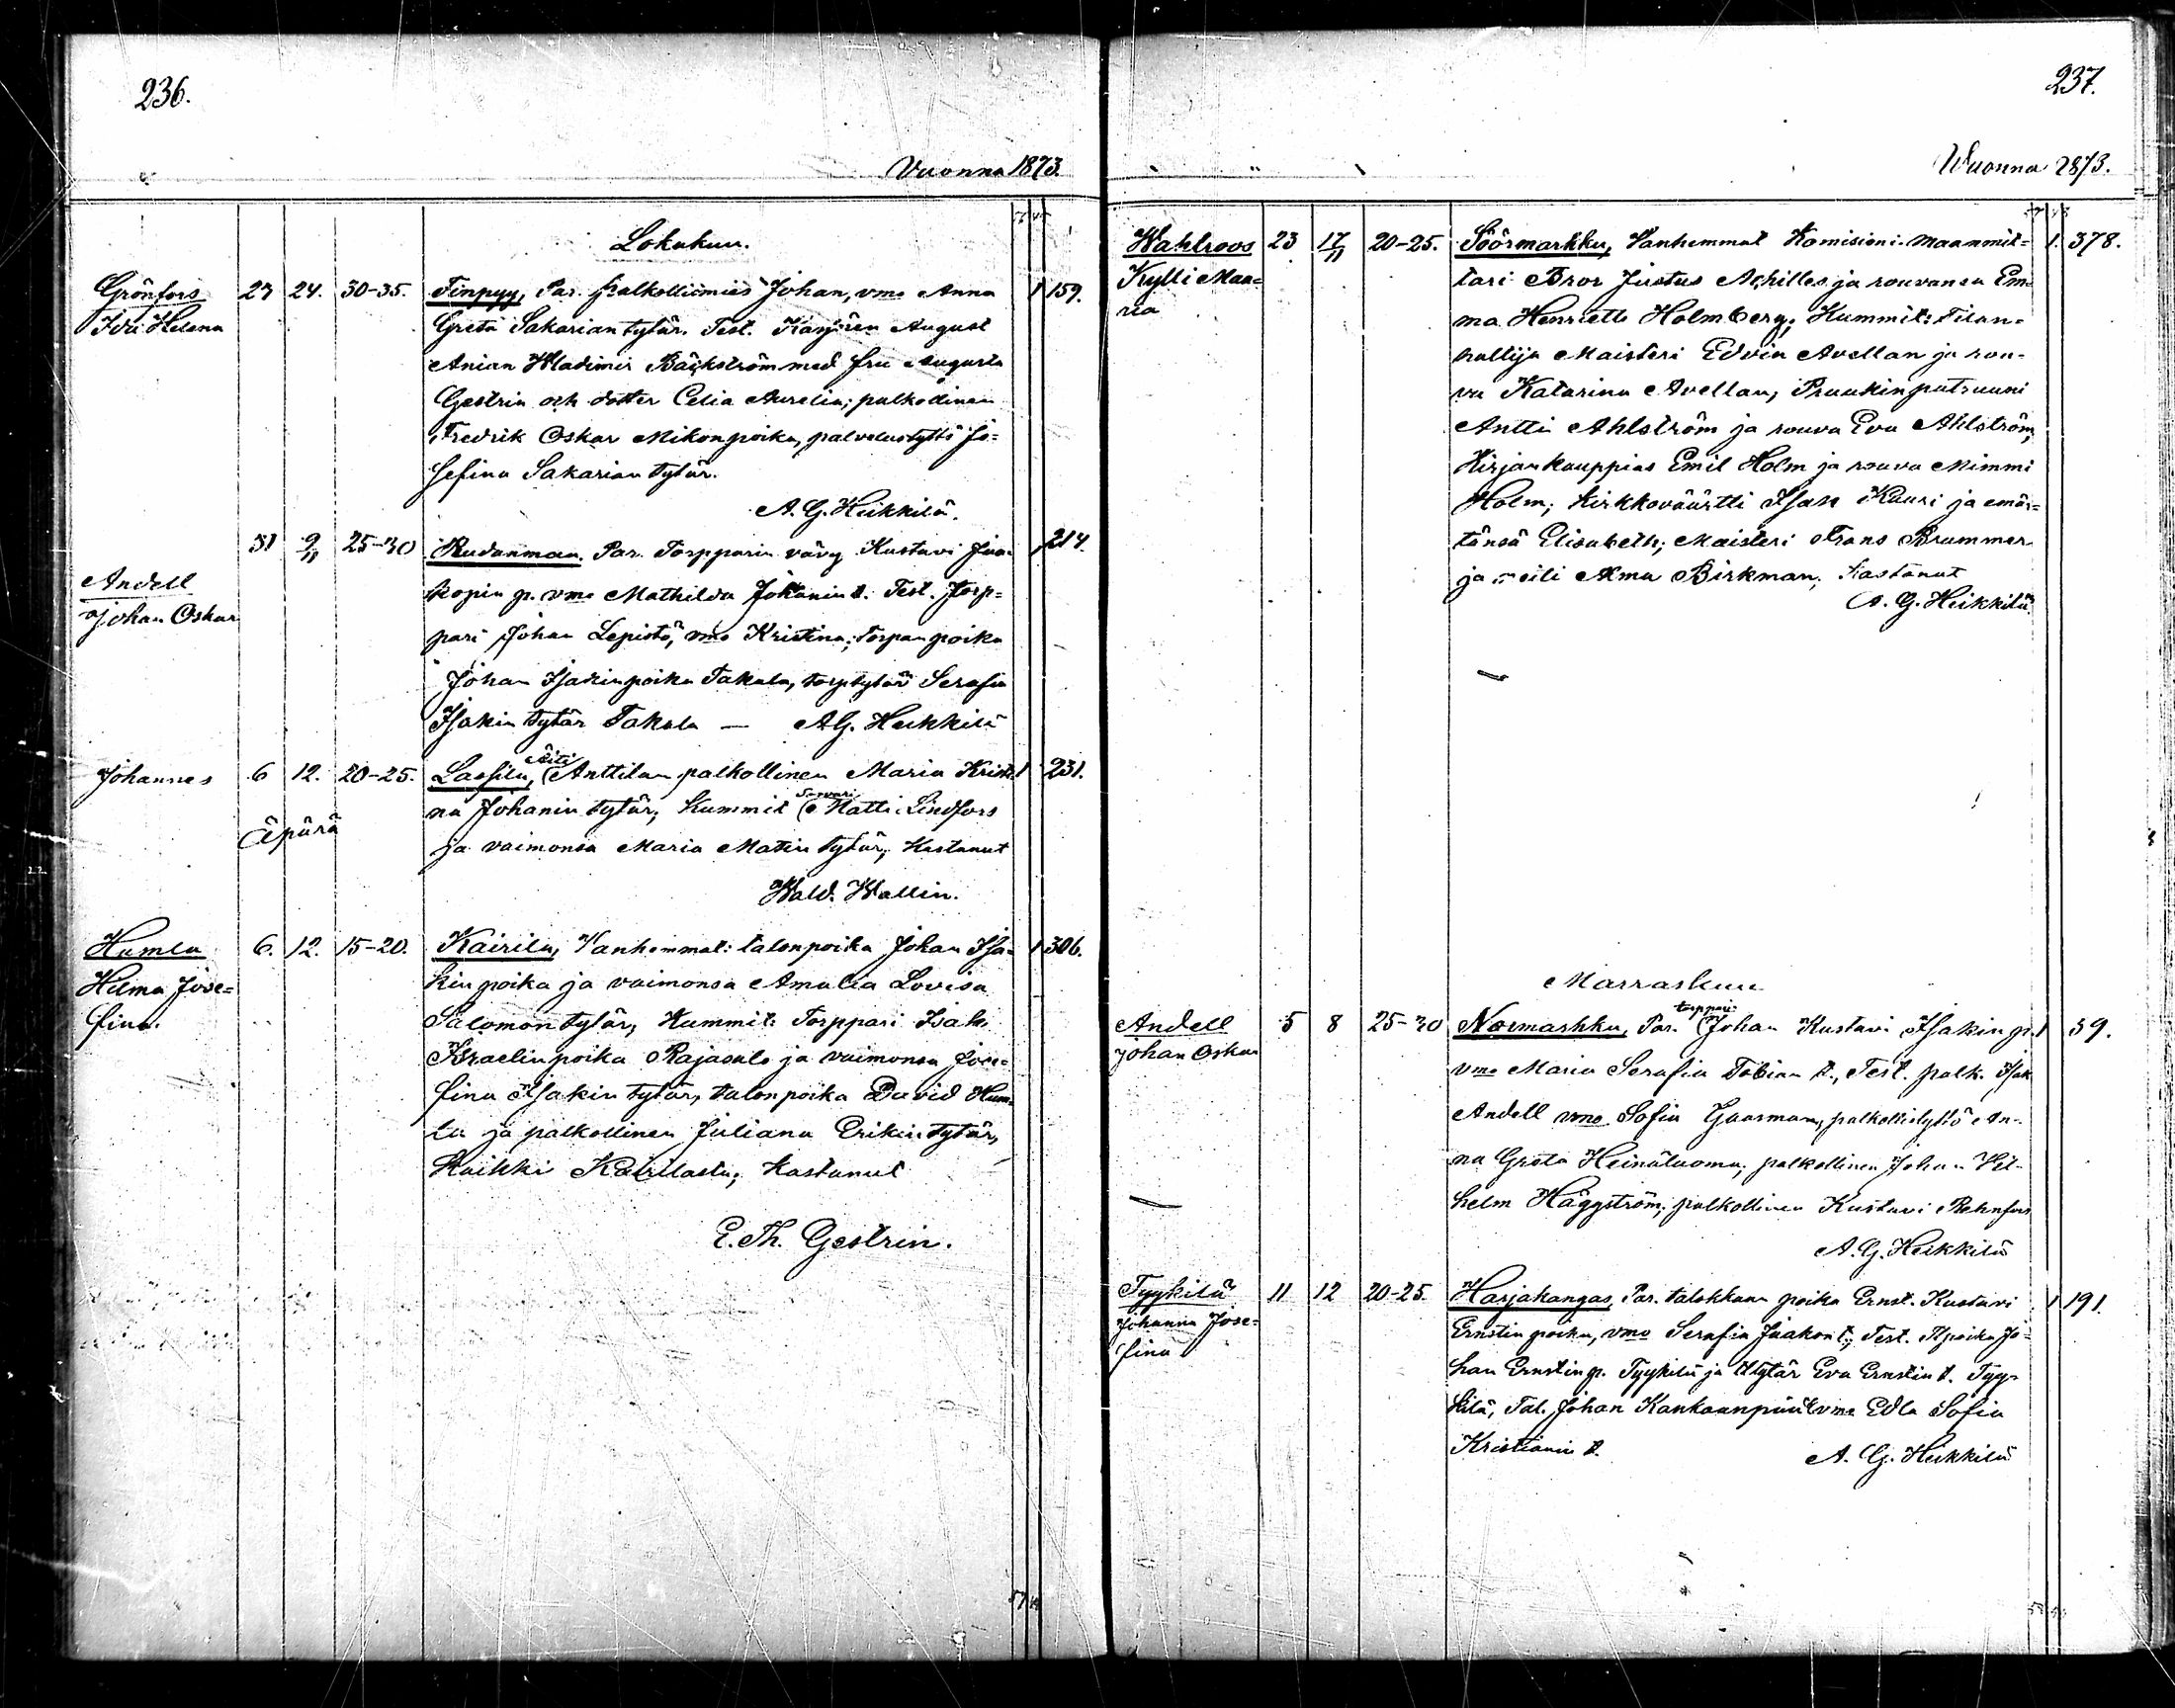 236.
Vuonna 1873.
Lokakuu.
Grönfors 27 24. 30-35. Finpyy, Par. palkollismies Johan, vmo Anna 1 159.
Ida Helena Greta Sakariantytär. Test. August
Anian Wladimir Bäckström med fru Augusta
Gestrin och dotter Celia Aurelia; palkollinen
Fredrik Oskar Mikonpoika, palvelustyttö Jo=
sefina Sakariantytär.
A. G. Heikkilä.
31 9/11 25-30 Rudanmaa. Par. Torpparin vävy Kustavi Jaa= 1 214.
Andell kopin p. vmo Mathilda Johanin t. Test. Torp=
Johan Oskar pari Johan Lepistö, vmo Kristina; torpanpoika
Johan Isakinpoika Takala, torptytär Serafia
Isakin tytär Takala — A.G. Heikkilä
Johannes 6 12. 20-25. Lassila, Äiti Anttilan palkollinen Maria Kristi= 1 231.
na Johanin tytär, Kummit Matti Lindfors
Äpärä
ja vaimonsa Maria Matin tytär, Kastanut
Wald. Wallin.
Humla 6. 12. 15-20. Kairila, Vanhemmat: talonpoika Johan Isa= 1 306.
Hilma Jose= kin poika ja vaimonsa Amalia Lovisa
fina. Salomon tytär, Kummit: Torppari Isak
Israelin poika Rajasalo ja vaimonsa Jose=
fina Isakin tytär, talonpoika David Hum=
la ja palkollinen Juliana Erikin tytär,
Kaikki Kairilasta; Kastanut
E. Th. Gestrin.
237.
Wuonna 1873.
Wahlroos 23 17/11 20-25. Söörmarkku, Vanhemmat Komisioni-maanmit= 1. 378.
Kylli Maa= tari Bror Justus Achilles ja rouvansa Em=
ria ma Henriette Holmberg; Kummit: Tilan=
haltija Maisteri Edvin Avellan ja rou=
va Katarina Avellan; Pruukinpatruuni
Antti Ahlström ja rouva Eva Ahlström,
Kirjankauppias Emil Holm ja rouva Mimmi
Holm; kirkkoväärtti Isak Kauri ja emän=
tänsä Elisabeth; Maisteri Frans Brummer
ja neiti Alma Birkman; Kastanut
A. G. Heikkilä.
Marraskuu
Andell 5 8 25-30 Noormarkku, Par. torppari Johan Kustavi Isakin p. 1 59.
Johan Oskar vmo Maria Serafia Tobian t., Test. palk. Isak
Andell vmo Sofia palkollistyttö An=
na Greta Heinäluoma; palkollinen Johan Vil=
helm Häggström; palkollinen Kustavi Rehnfors
A. G. Heikkilä
Tyykilä 11 12 20-25. Harjakangas, Par. talokkaan poika Ernst Kustavi 1 191.
Johanna Jose= Ernstin poika, vmo Serafia Jaakon t.; Test. Tlpoika Jo=
fina han Ernstin p. Tyykilä ja tltytär Eva Ernstin t. Tyy=
kilä, Tal. Johan Kankaanpää vmo Edla Sofia
Kristianin t. A. G. Heikkilä